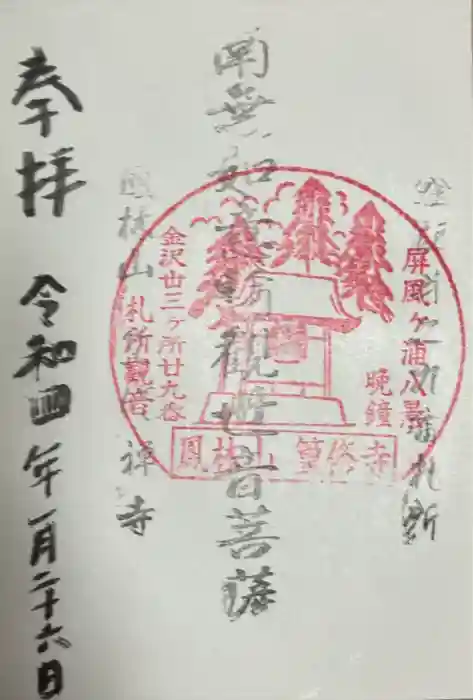 南無如意輪観世音菩薩
屏風ヶ浦八景
晩鐘
金沢丗三ヶ所廿九番
札所觀音
鳳林山
寺
山
禅寺
札所
奉拝
令和四年一月二十六日